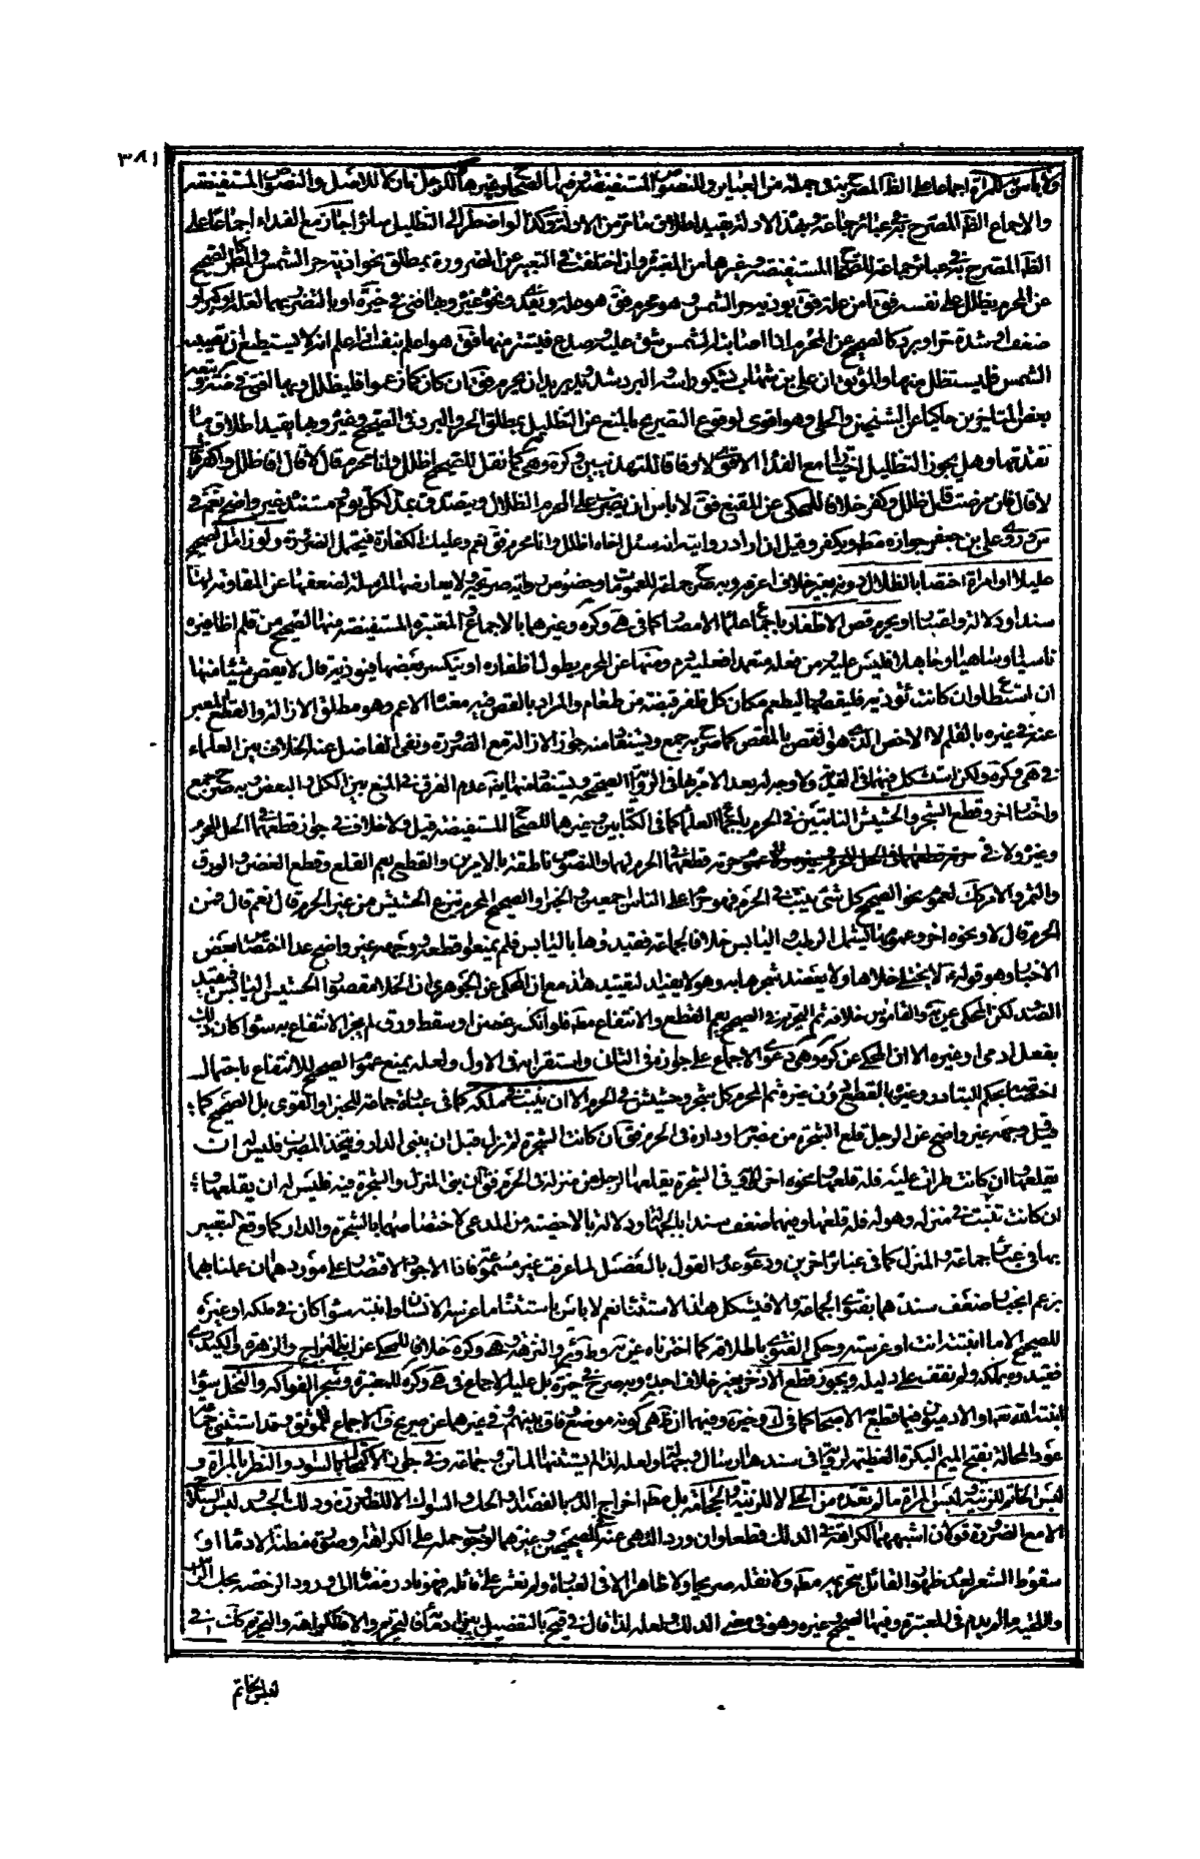 ٣٨١
ولا بأس للمرأة اجماعا على الظ المصرح به في جملة من العبائر والنصوص المستفيضة وفيها الصحاح وغيرها للرجل نازلا للاصل والنصوص المستفيضة
والاجماع الظ المصرح به في عبائر جماعة وبهذه الادلة يقيد اطلاق ما مر من الادلة وكذا لو اضطر الى التظليل سائرا جاز مع الفداء اجماعا على
الظ المصرح به في عبائر جماعة للصحاح المستفيضة وغيرها من المعتبرة وان اختلفت في التعبير عن الضرورة بمطلق نحو اذية حر الشمس والمطر كالصحيح
عن المحرم يظلل على نفسه فق أمن علة فق يؤذيه حر الشمس وهو محرم فق هو علة ويفدى ونحوه غيره وبها افتى في خيره او بالتضرر بهما لعلة او كبر او
ضعف او شدة حر او برد كالصحيح عن المحرم اذا اصابته الشمس شق عليه وصدع فيستتر منها فق هو اعلم بنفسه اذا علم انه لا يستطيع ان تصيبه
الشمس فليستظل منها والموثق ان على بن شهاب يشكو رأسه والبرد شديد يريد ان يحرم فق ان كان كما زعم فليظلل وبها افتى
بعض المتاخرين حاكيا عن الشيخين والحلى وهو اقوى لوقوع التصريح بالمنع عن التظليل بمطلق الحر والبرد في الصحيح وغيره وبها يقيد اطلاق ما
تقدمها وهل يجوز التظليل اختيارا مع الفداء الاقوى لا وفاقا للتهذيبين وكره وهى كما نقل للصحيح اظلل وانا محرم قال لا قال افاظلل واكفر قا
لا قال فان مرضت قال ظلل وكفر خلافا للمحكى عن المقنع فق لا باس ان يضرب على المحرم الظلال ويتصدق بمد لكل يوم ومستنده غير واضح نعم في
س روى على بن جعفر جوازه مطلقا ويكفر وقيل انه اراد روايته انه سئل اخاه اظلل وانا محرم فق نعم وعليك الكفارة فيحتمل الضرورة ولو زامل الصحيح
عليلا او امراة اختصا بالظلال دونه بغير خلاف اعرفه وبه صرح جماعة للعمومات وخصوص رواية صريحة لا يعارضها المرسلة لضعفها عن المقاومة لها
سندا ودلالة واعتبارا ويحرم قص الاظفار باجماع علماء الامصار كما في هى وكره وغيرهما بالاجماع والمعتبرة المستفيضة منها الصحيح من قلم اظافيره
ناسيا او ساهيا او جاهلا فليس عليه شئ ومن فعله متعمدا فعليه دم ومنها عن المحرم يطول اظفاره او ينكسر بعضها فيؤذيه قال لا يقص شيئا منها
ان استطاع وان كانت تؤذيه فليقصها وليطعم مكان كل ظفر قبضة من طعام والمراد بالقص فيه معناه الاعم وهو مطلق الازالة والقطع المعبر
عنه في غيره بالقلم لا الاخص الذى هو القص بالمقص كما صرح به جمع ويستفاد منه جواز الازالة مع الضرورة ونفى الفاضل عنه الخلاف بين العلماء
في هى وكره ولكن استشكل فيهما في الفدية ولا وجه له بعد الامر بها في الرواية الصحيحة ويستفاد منها ايض عدم الفرق في المنع بين الكل والبعض وبه صرح جمع
واختاره اخر وقطع الشجر والحشيش النابتين في الحرم باجماع العلماء كما في الكتابين وغيرهما للصحاح المستفيضة قيل ولا خلاف في جواز قطعهما في الحل للمحرم
وغيره ولا في حرمة قطعهما في الحرم لهما والنصوص ناطقة بالامرين والقطع يعم القلع وقطع الغصن والورق
والثمر والامر كك لعموم نحو الصحيح كل شئ ينبت في الحرم فهو حرام على الناس اجمعين والخبر او الصحيح المحرم ينزع الحشيش من غير الحرم قال نعم قال فمن
الحرم قال لا ونحوه اخر وعمومها يشمل الرطب واليابس خلافا لجماعة فقيدوها باليابس فلم يمنعوا قطعه ووجهه غير واضح عدا اختصاص بعض
الاخبار وهو قوله لا يختلى خلاها ولا يعضد شجرها به وهو لا يفيد لتقييد هذه مع ان المحكى عن الجوهرى ان الخلا مقصورا الحشيش اليابس فيفيد
الضد لكن المحكى عن يه والقاموس خلافه ثم التحريم في الصحيح يعم القطع والانتفاع مط فلو انكسر غصن او سقط ورق لم يجز الانتفاع به سواء كان ذلك
بفعل ادمى او غيره الا ان المحكى عن كره وهى دعوى الاجماع على جوازه في الثانى واستقرابه في الاول ولعله يمنع عموم الصحيح للانتفاع باحتمال
اختصاصه بحكم التبادر وغيره بالقطع دون غيره ثم المحرم كل شجر وحشيش في الحرم الا ان ينبت في ملكه كما في عبارة جماعة للخبر او القوى بل الصحيح كما
قيل ووجهه غير واضح عن الرجل قلع الشجرة من مضربه او داره في الحرم فق ان كانت الشجرة لم تزل قبل ان يبنى الدار ويتخذ المضرب فليس له ان
يقلعها وان كانت طرأت عليه فله قلعها ونحوه اخر المروى في الشجرة يقلعها الرجل من منزله في الحرم فق ان بنى المنزل والشجرة فيه فليس له ان يقلعها و
ان كانت تنبت في منزله وهو له فله قلعها وفيهما ضعف سندا بالجهالة ودلالة بالاخصية من المدعى لاختصاصهما بالشجرة والدار كما وقع التعبير
بها في عبارة جماعة والمنزل كما في عبائر اخرين ودعوى عدم القول بالفصل لما عرفت غير مسموعة فاذا الاجود الاقتصار على موردهما ان عملنا بهما
بزعم انجبار ضعف سندهما بفتوى الجماعة والا فيشكل هذا الاستثناء نعم لا باس باستثناء ما غرسه الانسان او انبته سواء كان في ملكه او غيره
للصحيح الا ما انبتته انت او غرسته وحكى الفتوى باطلاقه كما اخترناه عن يه وط وئر والنزهة وهى وكره خلافا للمحكى عن ابنى البراج والزهرة والكيدرى
فقيدوه بملكه ولم نقف على دليله ويجوز قطع الاذخر بغير خلاف اجده وبه صرح في خيره بل عليه الاجماع في هى وكره للمعتبرة وشجر الفواكه والنخل سواء
انبته الله تعالى او الادميون فيما قطع به الاصحاب كما في ك وخيره وفيهما ان ظ هى كونه موضع وفاق بينهم وفي غيرهما عن صريح ف الاجماع للموثق وقد استثنى جماعة
عودى المحالة بفتح الميم البكرة العظيمة لرواية في سندها ارسال وجهالة ولعله لذا لم يستثنهما الماتن وجماعة وفي جواز الاكتحال بالسواد والنظر بالمرآة و
لبس الخاتم للزينة ولبس المراة ما لم تعتده من الحلى لا للزينة والحجامة بل مط اخراج الدم بالفصد والحك والسواك الا للضرورة ودلك الجسد ولبس السلاح
الا مع الضرورة قولان اشبههما الكراهة في الدلك قطعا وان ورد النهى عنه في الصحيحين وغيرهما لوجوب حمله على الكراهة وصورة مظنة الادماء او
سقوط الشعر لعدم ظهور القائل بتحريمه مط ولا نقله صريحا ولا ظاهرا الا في العبارة ولم نعثر على قائله فهو نادر مضافا الى ورود الرخصة بحك الراس
واللحية ما لم يدم في المعتبرة وفيها الصحيح وغيره وهو في معنى الدلك ولعله لذا قال في قيح بالتفصيل بين ادماء فالتحريم والا فالكراهة والتحريم كك في
لبس الخاتم